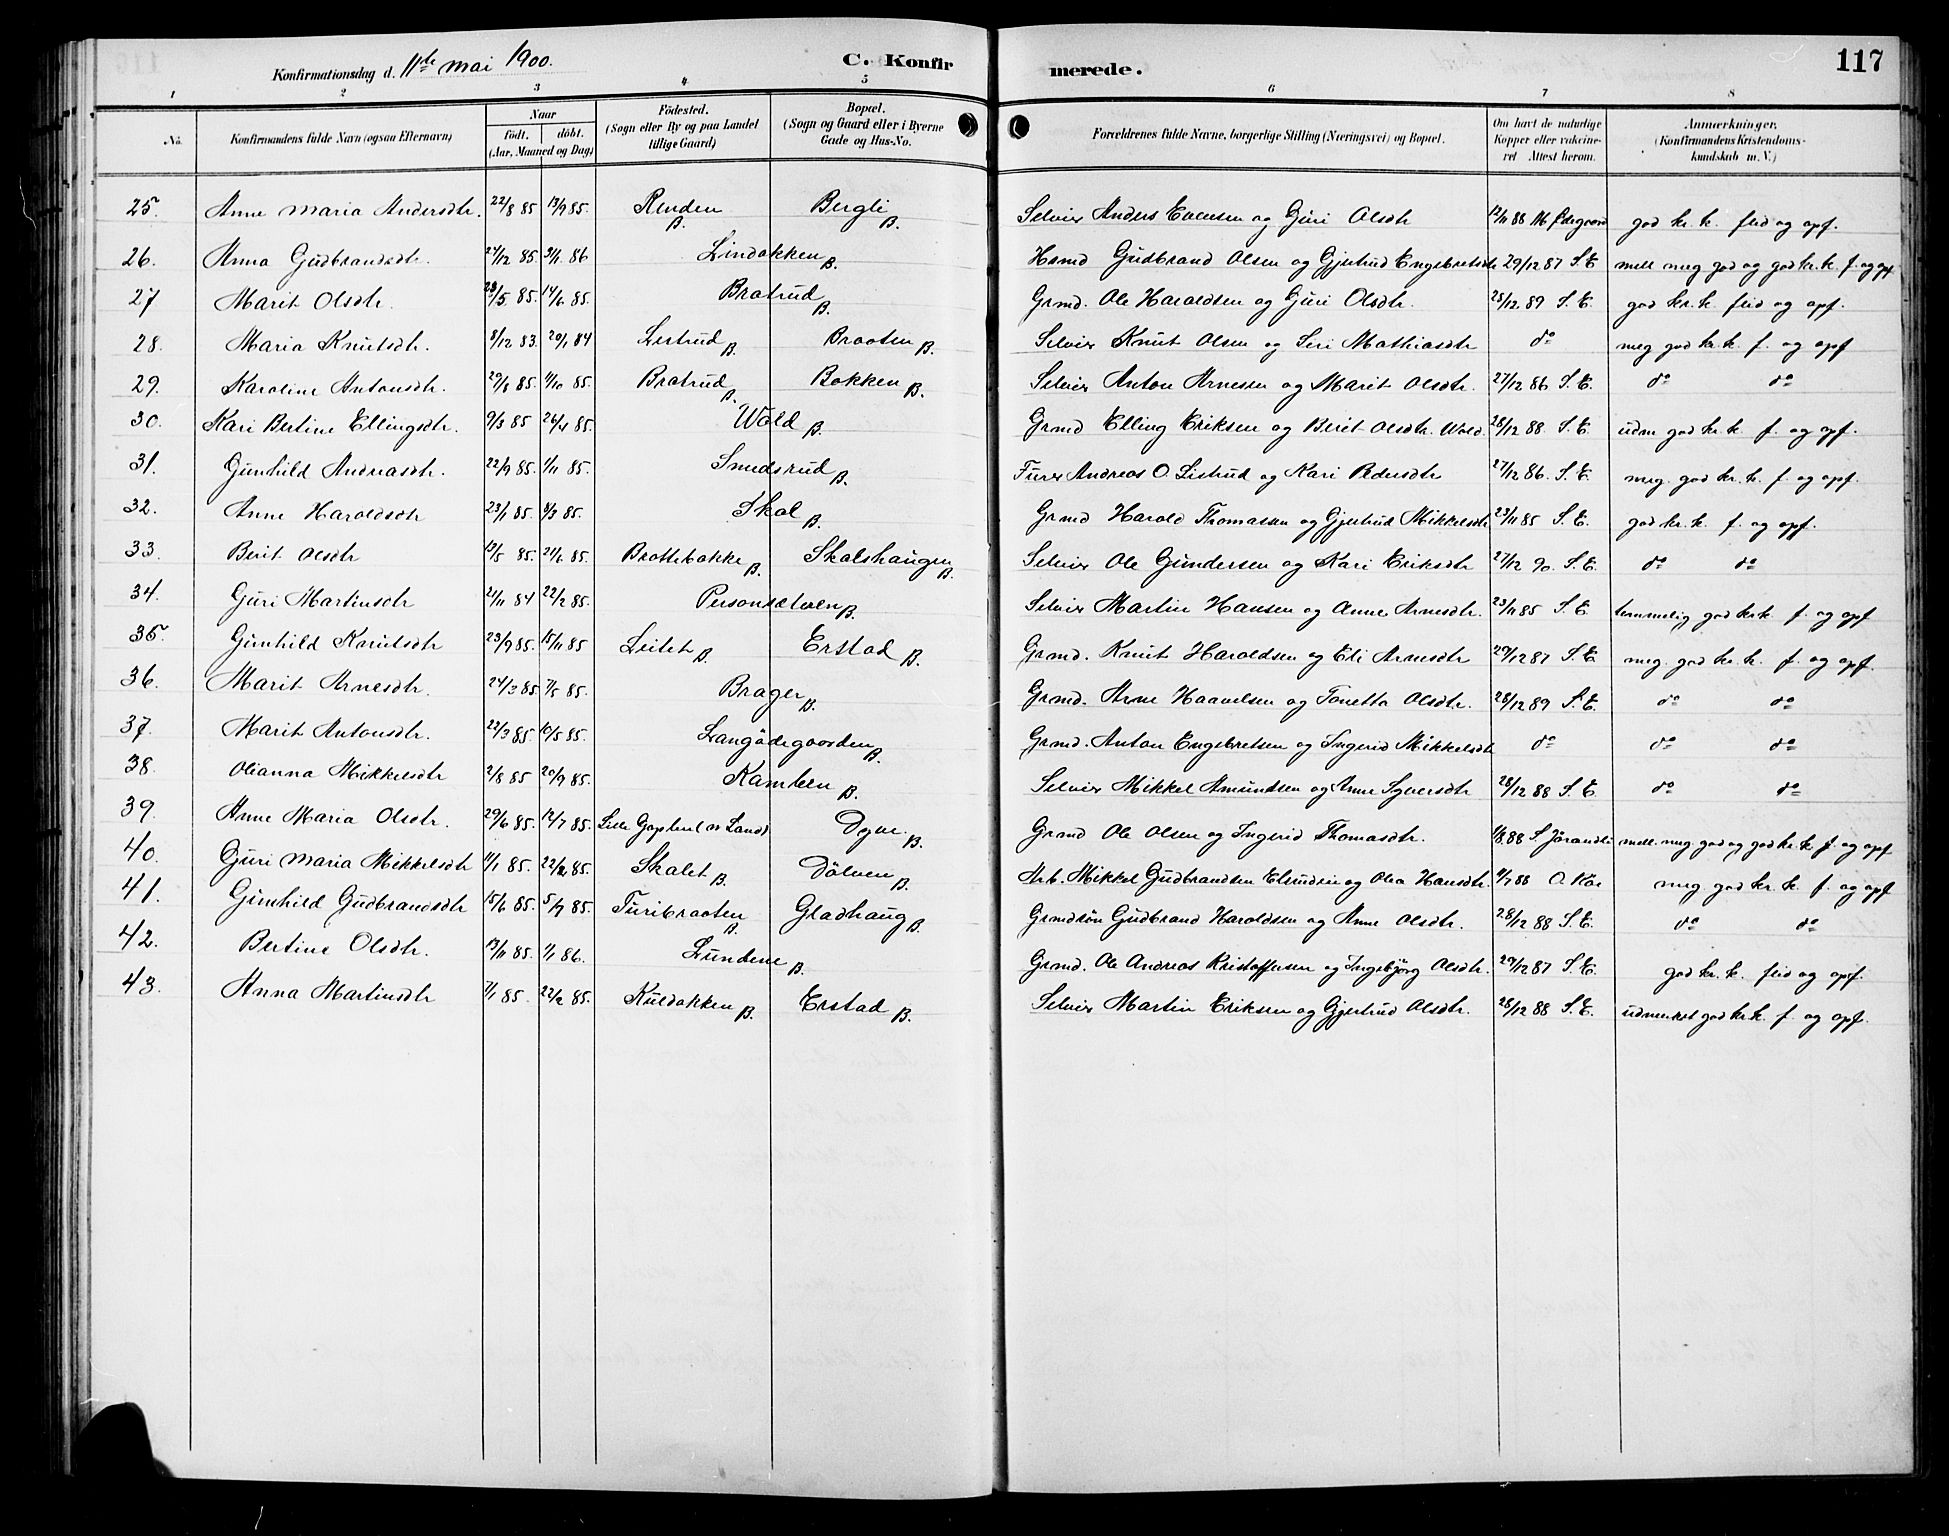 117
Konfirmationsdag d. 11te mai 1900. C. Konfirmerede.
1 2 3 4 5 6 7 8
No. Konfirmandens fulde Navn (ogsaa Efternavn) Naar födt. döbt. (Aar, Maaned og Dag) Födested. (Sogn eller By og paa Landet tillige Gaard) Bopæl. (Sogn og Gaard eller i Byerne Gade og Hus-No. Forældrenes fulde Navne, borgerlige Stilling (Næringsvei) og Bopæl. Om havt de naturlige Kopper eller vakcineret Attest herom. Anmærkninger. (Konfirmandens Kristendomskundskab m. V.)
25. Anne Maria Andersdtr. 22/8 85 13/9 85. Renden B. Bergli B. Selvier Anders Evensen og Guri Olsdtr 12/11 88 god kr. k. flid og opf.
26. Anna Gudbrandsdtr. 24/12 85. 31/1 86 Lindokken B. Hsmd Gudbrand Olsen og Gjertrud Engebretsdtr 29/12 87 S. E. mell meg god og god kr. k. f. og opf
27 Marit Olsdtr. 28/5 85. 14/6 85. Bratrud B. Grmd. Ole Haroldsen og Guri Olsdtr. 28/12 89 S. E. god kr. k. flid og opf.
28. Maria Knutsdtr. 8/12 83. 20/1 84 Listrud B. Braaten B. Selvier Knut Olsen og Siri Mathiasdtr do meg god kr. k. f. og opf
29. Karoline Antonsdtr. 29/8 85. 4/10 85. Bratrud B. Bakken B. Selvier Anton Arnesen og Marit Olsdtr. 27/12 86 S. E. do do
30. Kari Bertine Ellingsdtr. 9/3 85 26/4 85. Wold B. Grmd Elling Eriksen og Berit Olsdtr. Wold 28/12 88. S. E. udm god kr. k. f. og opf.
31. Gunhild Andreasdtr. 22/9 85. 1/11 85. Smedsrud B. Furer Andreas O. Listrud og Kari Pedersdtr 27/12 86. S. E. meg. god kr. k. f. og opf.
32. Anne Haroldsdtr 23/1 85. 8/3 85. Skol B. Grmd Harold Thomassen og Gjertrud Mikkelsdtr 23/11 85 S. E. god kr. k. f. og opf.
33. Berit Olsdtr 12/5 85. 21/6 85. Brattebakke B. Skolshaugen B. Selvier Ole Gundersen og Kari Eriksdtr 27/12 90. S. E. do do
34. Guri Martinsdtr 21/11 84 22/2 85. Personsæteren B. Selvier Martin Hansen og Anne Arnesdtr. 23/11 85 S. E. temmelig god kr. k. f. og opf
35. Gunhild Knutsdtr 23/9 85. 15/11 85 Leitet B. Erstad B. Grmd. Knut Haroldsen og Eli Arnesdtr 29/12 87 S. E. meg. god kr. k. f. og opf.
36. Marit Arnesdtr. 24/3 85 7/5 85. Brager B. Grmd. Arne Haavelsen og Tonetta Olsdtr. 28/12 89 S. E. do do
37. Marit Antonsdtr. 22/3 85. 10/5 85. Langødegaarden B. Grmd. Anton Engebretsen og Ingerid Mikkelsdtr do do do
38. Olianna Mikkelsdtr 2/8 85 20/9 85. Kamben B. Selvier Mikkel Amundsen og Anne Syversdtr 28/12 88 S. E. do do
39. Anne Maria Olsdtr. 29/6 85. 12/7 85. Lille Land Dyne B. Grmd Ole Olsen og Ingerid Thomasdtr. 1/8 88 S. Jørandli mell. meg. god og god kr. k. f. og opf
40. Guri Maria Mikkelsdtr 11/1 85. 22/2 85. Skalet B. Dölven B. Arb. Mikkel Gudbrandsen og Olea Hansdtr. 4/7 88 O. meg. god kr. k. f. og opf
41. Gunhild Gudbrandsdtr 15/6 85. 5/9 85. Turibraaten B. Gladhaug B. Grmdsön Gudbrand Haroldsen og Anne Olsdtr. 28/12 88 S. E. do do
42. Bertine Olsdtr. 13/11 85. 1/1 86. Lundene B. Grmd. Ole Andreas Kristoffersen og Ingebjörg Olsdtr. 29/12 87 S. E. god kr. k. flid og opf.
43. Anna Martinsdtr 7/1 85. 22/2 85. Kuldokken B. Erstad B. Selvier Martin Eriksen og Gjertrud Olsdtr. 28/12 88 S. E. udmerket god kr. k. f. og opf.